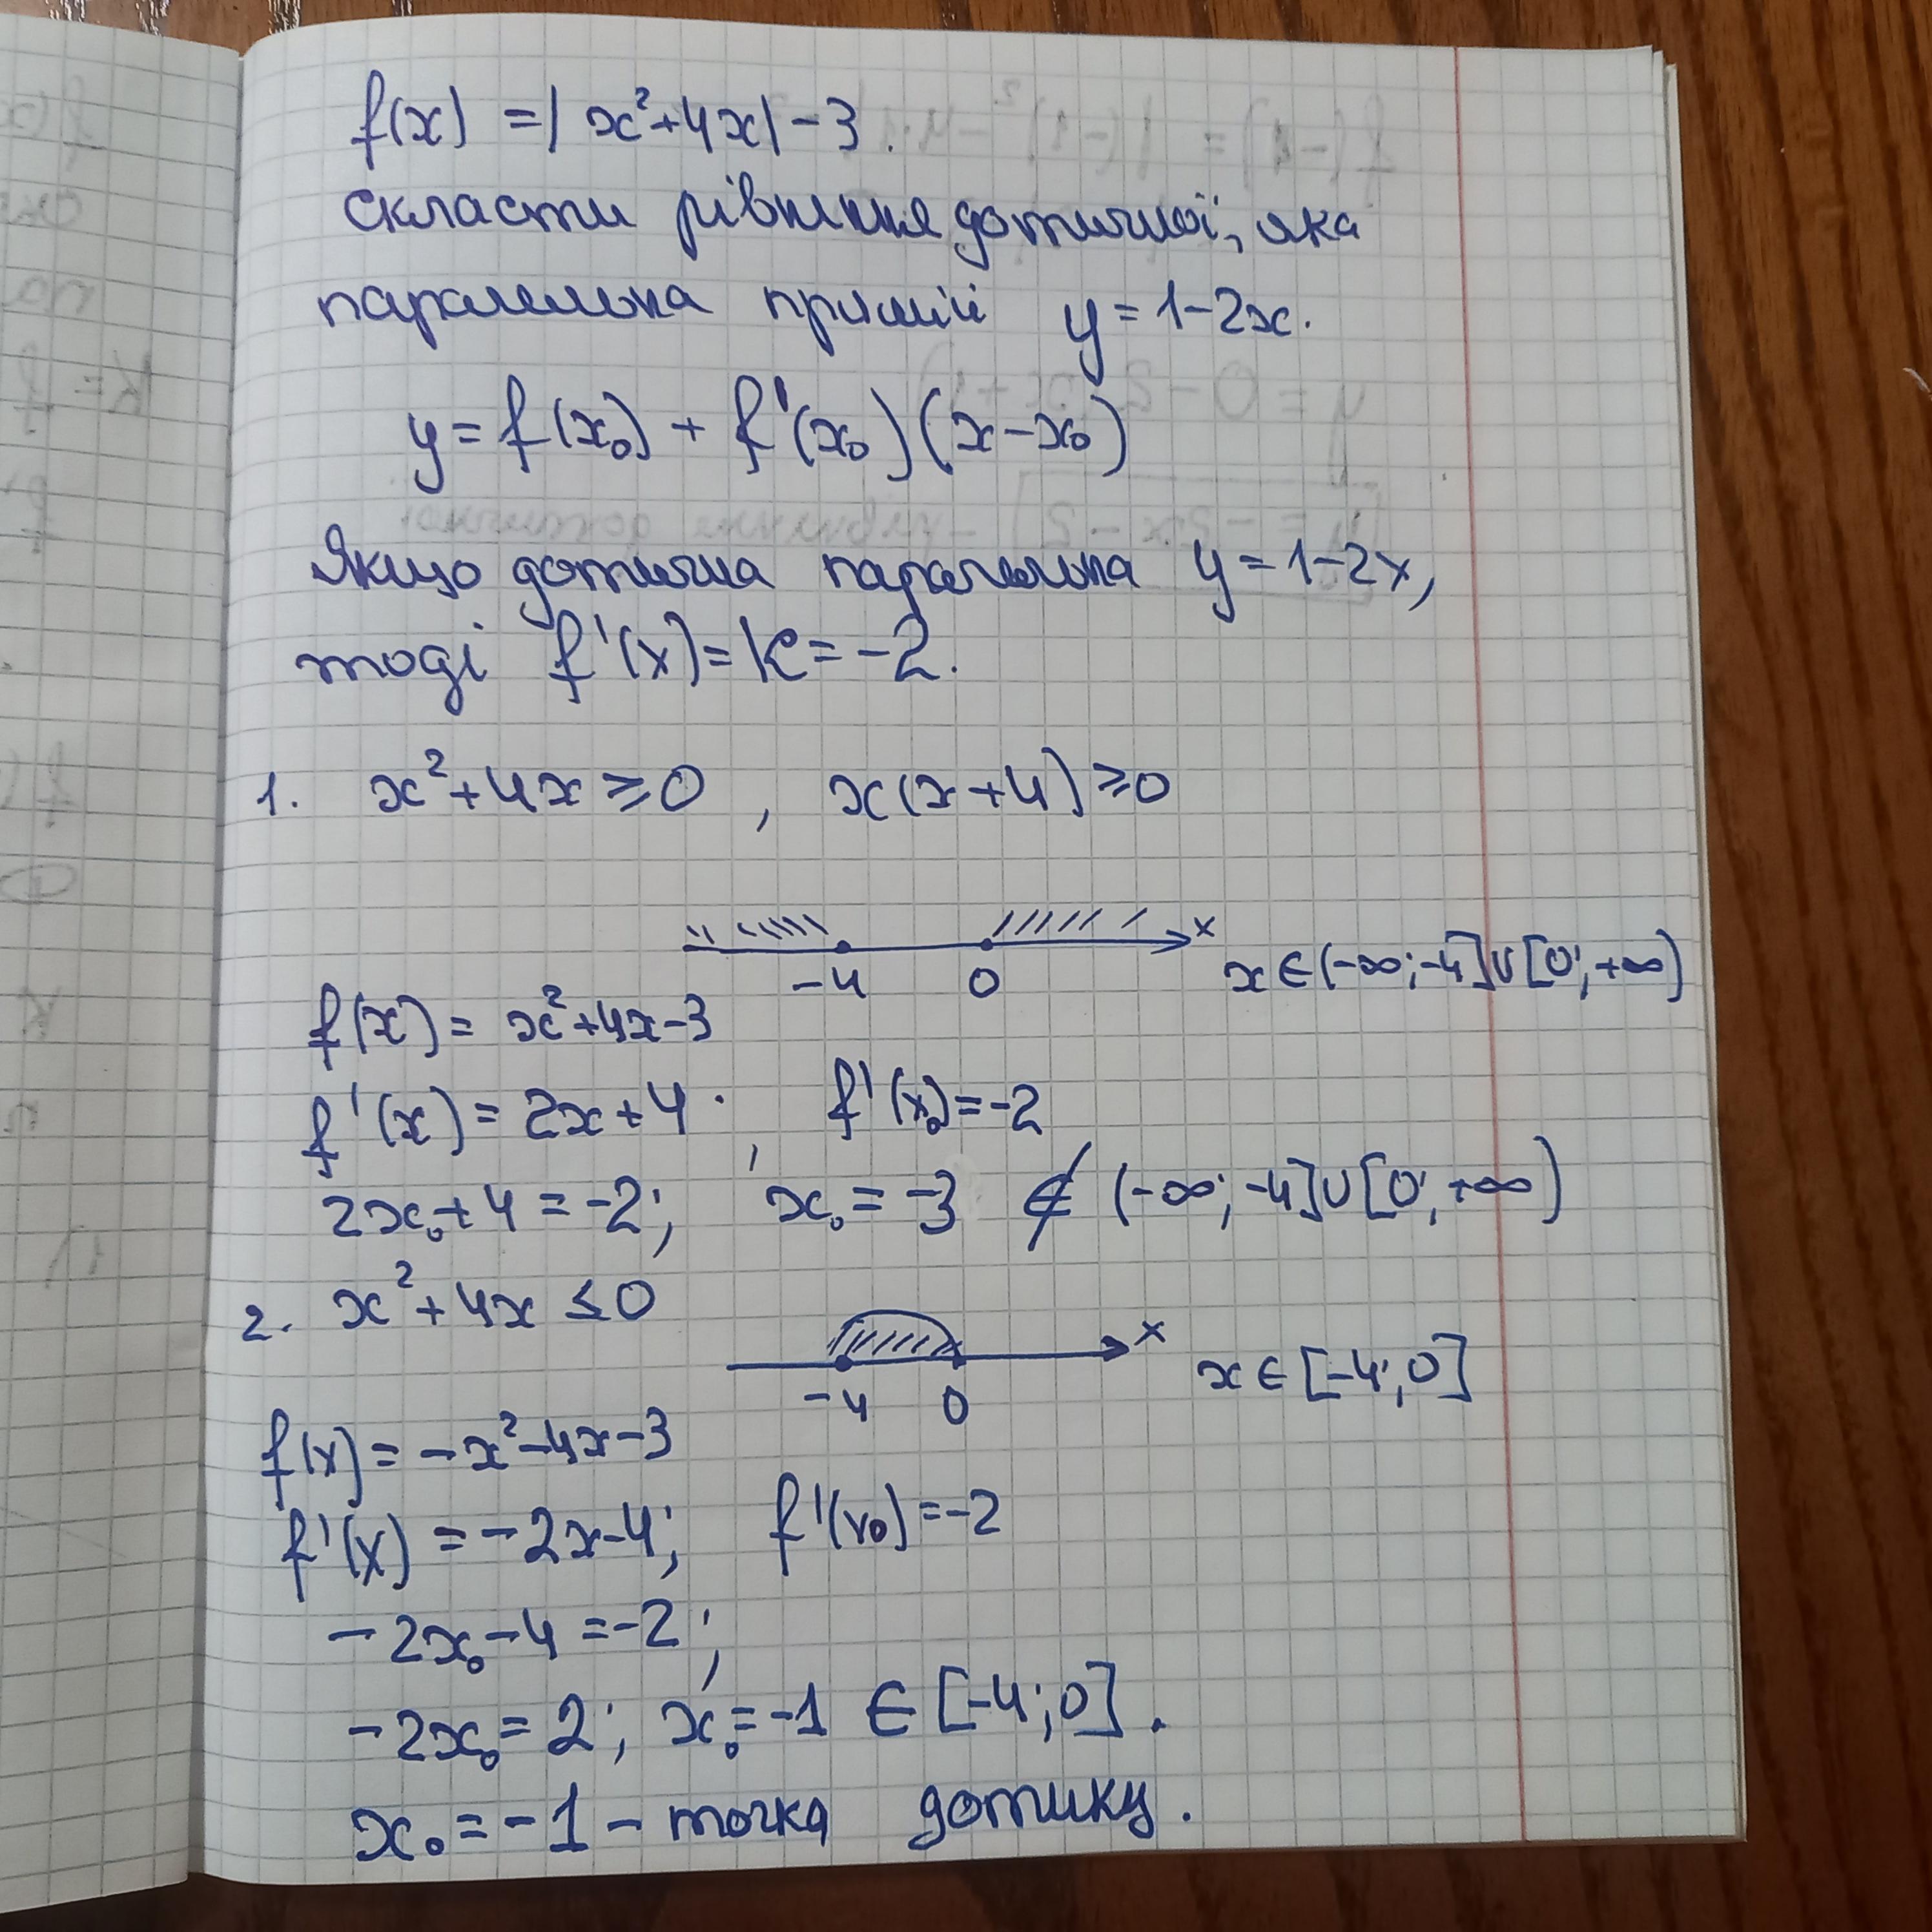 f(x) = |x²+4x|-3.
Скласти рівняння дотичної, яка
паралельна прямій y = 1-2x.
y = f(x₀) + f'(x₀)(x-x₀)
Якщо дотична паралельна y = 1-2x,
тоді f'(x) = k = -2.
1. x²+4x ≥ 0, x(x+4) ≥ 0
x
-4 0 x ∈ (-∞; -4] ∪ [0; +∞)
f(x) = x²+4x-3
f'(x) = 2x+4; f'(x₀) = -2
2x₀+4 = -2; x₀ = -3 ∉ (-∞; -4] ∪ [0; +∞)
2. x²+4x ≤ 0
x
-4 0 x ∈ [-4; 0]
f(x) = -x²-4x-3
f'(x) = -2x-4; f'(x₀) = -2
-2x₀-4 = -2;
-2x₀ = 2; x₀ = -1 ∈ [-4; 0].
x₀ = -1 - точка дотику.